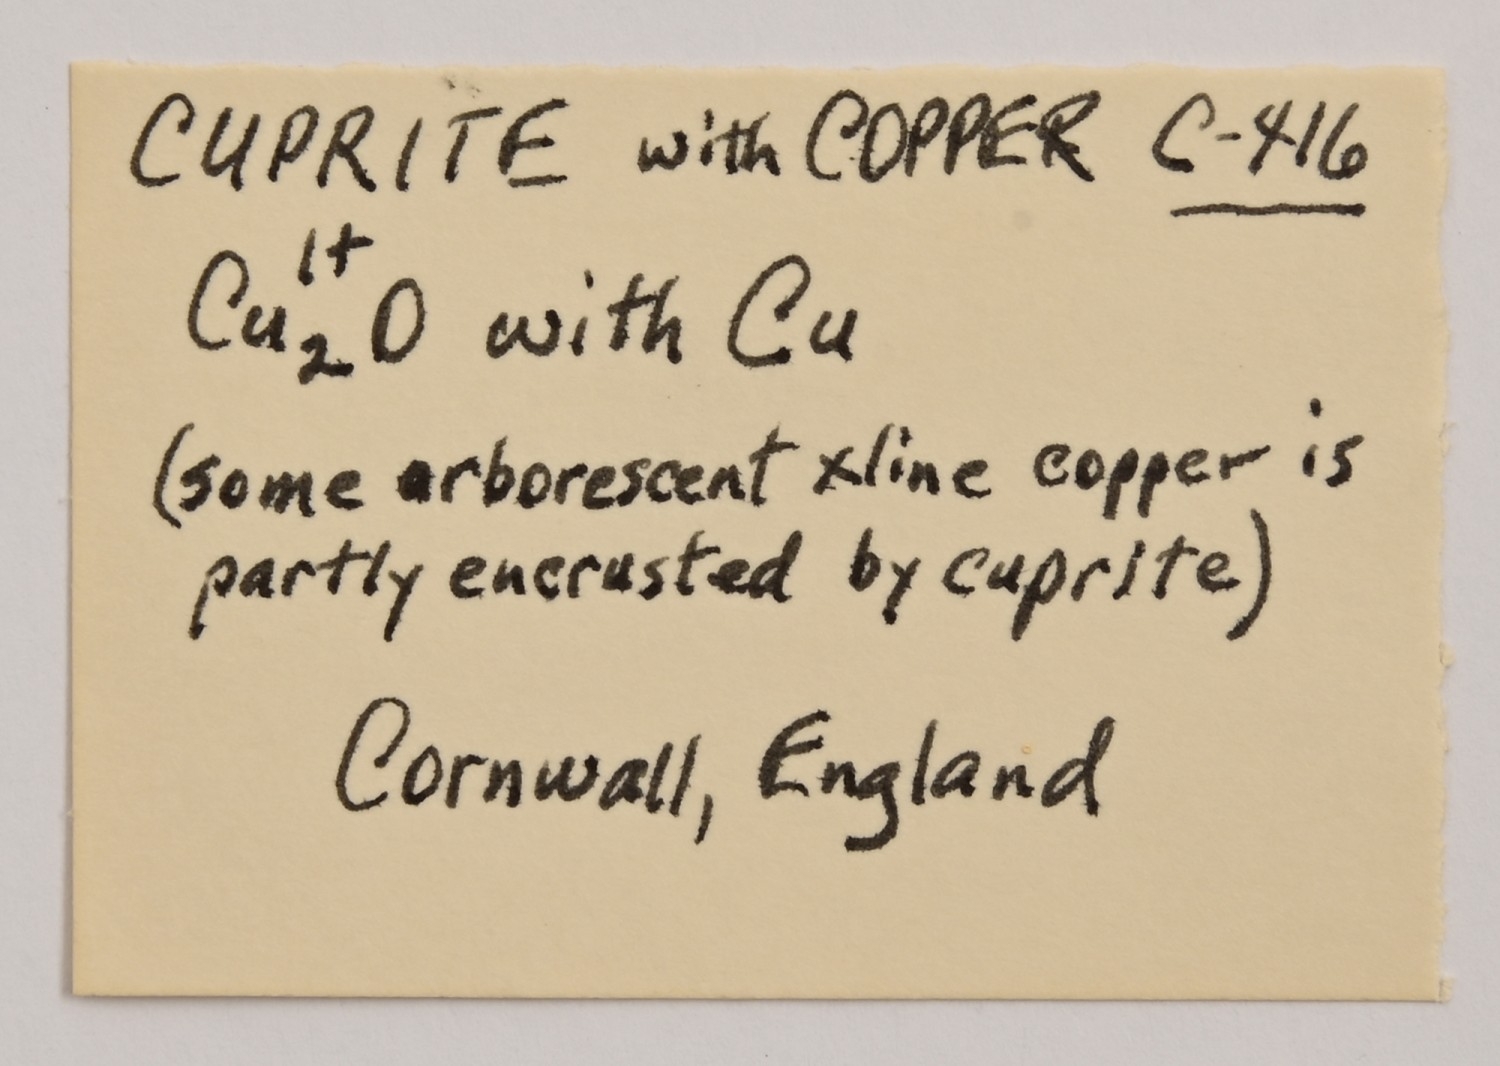 CUPRITE with COPPER C-416
Cu₂¹⁺O with Cu
(some arborescent xline copper is
partly encrusted by cuprite)
Cornwall, England